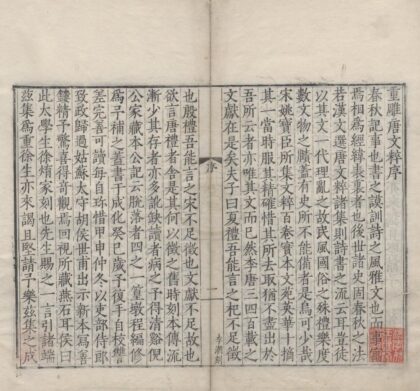 重雕唐文粹序
春秋記事也書之謨訓詩之風雅文也而事實
焉相爲經緯者也後世諸史固春秋之法
若漢文選唐文粹諸集則詩書之流云耳豈徒
以其文一代理亂之故民風國俗之殊禮樂度
數文物之賾蓋有史所不能備者是烏可少哉
宋姚寶臣所集文粹百卷實本文苑英華十摘
其一當時服其精確惜其所去取猶不盡出於
吾所云者亦唯其文而已然李唐三四百載之
文獻在是矣夫子曰夏禮吾能言之杞不足徵
序
一
也殷禮吾能言之宋不足徵也文獻不足故也
欲言唐禮者舍是其何以徵之舊時刻本傳流
漸少其存者亦多訛缺讀者病之予得清谿倪
公家藏本公記云脫落者四之一篁墩程編修
爲予補之蓋書于成化癸巳歲予復手自校讐
差完善可讀每自珍惜甲申仲冬以吏部侍郎
致政歸過姑蘇太守胡侯世甫出示新本寫善
鋟精予驚喜得奇觀焉回視所藏燕石耳侯曰
此太學生徐焴家刻也先生賜之一言引諸端
玆集爲重徐生亦來謁且堅請予樂玆集之成